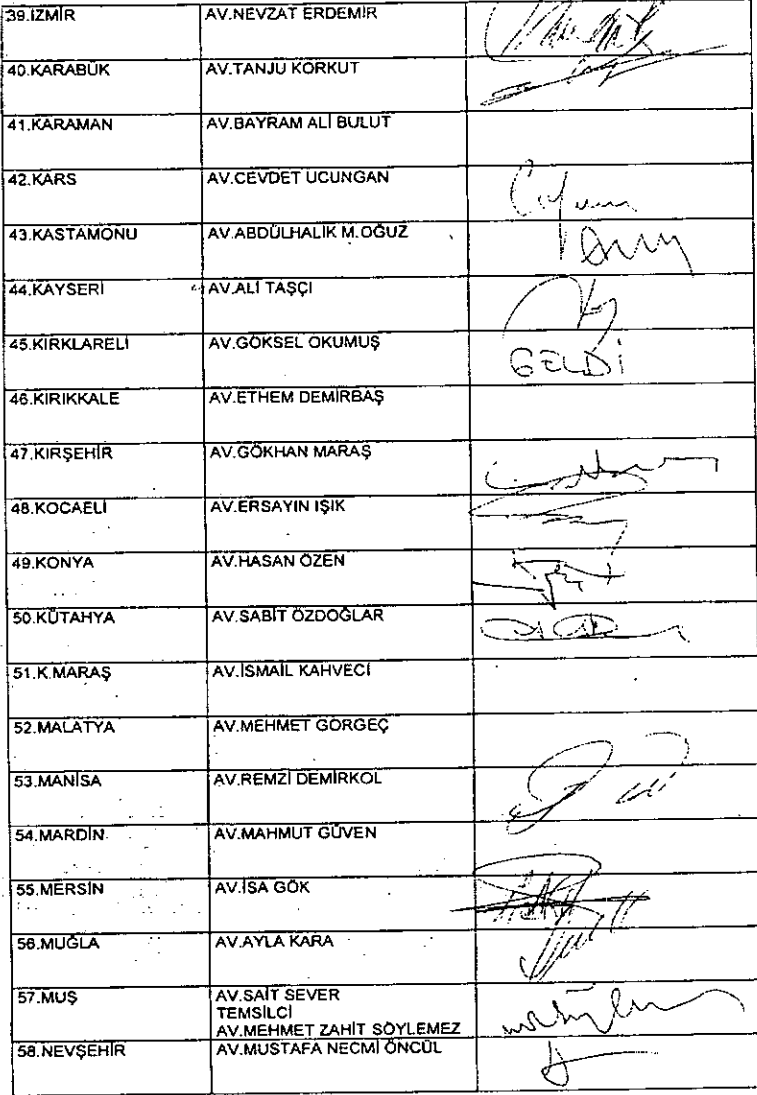 39.İZMİR AV.NEVZAT ERDEMİR
40.KARABÜK AV.TANJU KORKUT
41.KARAMAN AV.BAYRAM ALİ BULUT
42.KARS AV.CEVDET UCUNGAN
43.KASTAMONU AV.ABDÜLHALİK M.OĞUZ
44.KAYSERİ AV.ALİ TAŞÇI
45.KIRKLARELİ AV.GÖKSEL OKUMUŞ GELDİ
46.KIRIKKALE AV.ETHEM DEMİRBAŞ
47.KIRŞEHİR AV.GÖKHAN MARAŞ
48.KOCAELİ AV.ERSAYIN IŞIK
49.KONYA AV.HASAN ÖZEN
50.KÜTAHYA AV.SABİT ÖZDOĞLAR
51.K.MARAŞ AV.İSMAİL KAHVECİ
52.MALATYA AV.MEHMET GÖRGEÇ
53.MANİSA AV.REMZİ DEMİRKOL
54.MARDİN AV.MAHMUT GÜVEN
55.MERSİN AV.İSA GÖK
56.MUĞLA AV.AYLA KARA
57.MUŞ AV.SAİT SEVER
TEMSİLCİ
AV.MEHMET ZAHİT SÖYLEMEZ
58.NEVŞEHİR AV.MUSTAFA NECMİ ÖNCÜL